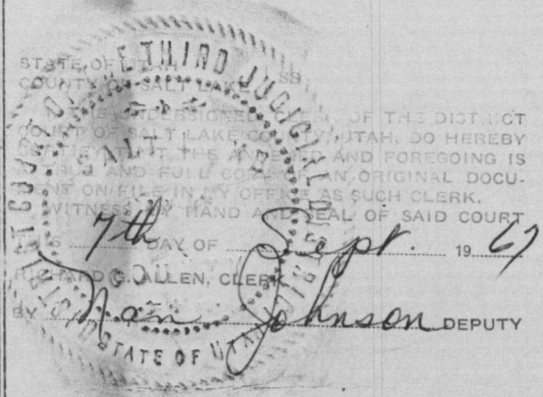 STATE OF UTAH
COUNTY OF SALT LAKE SS
UNDERSIGNED CLERK OF THE DISTRICT
COURT OF SALT LAKE COUNTY, UTAH, DO HEREBY
CERTIFY THAT THE ANNEXED AND FOREGOING IS
A TRUE AND FULL COPY OF AN ORIGINAL DOCU-
MENT ON FILE IN MY OFFICE AS SUCH CLERK.
WITNESS MY HAND AND SEAL OF SAID COURT
THIS 7th DAY OF Sept. 19 67
ALLEN, CLERK
BY Nan Johnson DEPUTY
COURT OF THE THIRD JUDICIAL DISTRICT
STATE OF UTAH